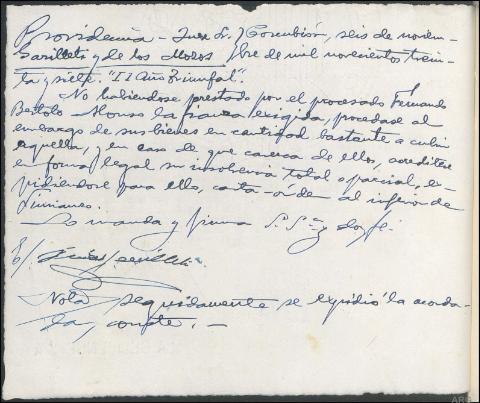 Providencia - Juez Sr. } Corcubión, seis de noviem-
Sarilleti y de los Mozos } bre de mil novecientos trein-
ta y siete. "II Año Triunfal".
No habiendose prestado por el procesado Fernando
Bertolo Alonso la fianza exigida, procedase al
embargo de sus bienes en cantidad bastante a cubrir
aquella, y en caso de que carezca de ellos, acreditese
en forma legal su insolvencia total o parcial, ex-
pidiendose para ello, carta-orden al inferior de
Lo manda y firma S. Sª y doy fé.
Nota Seguidamente se expidió la acorda-
da, conste. -
ARG